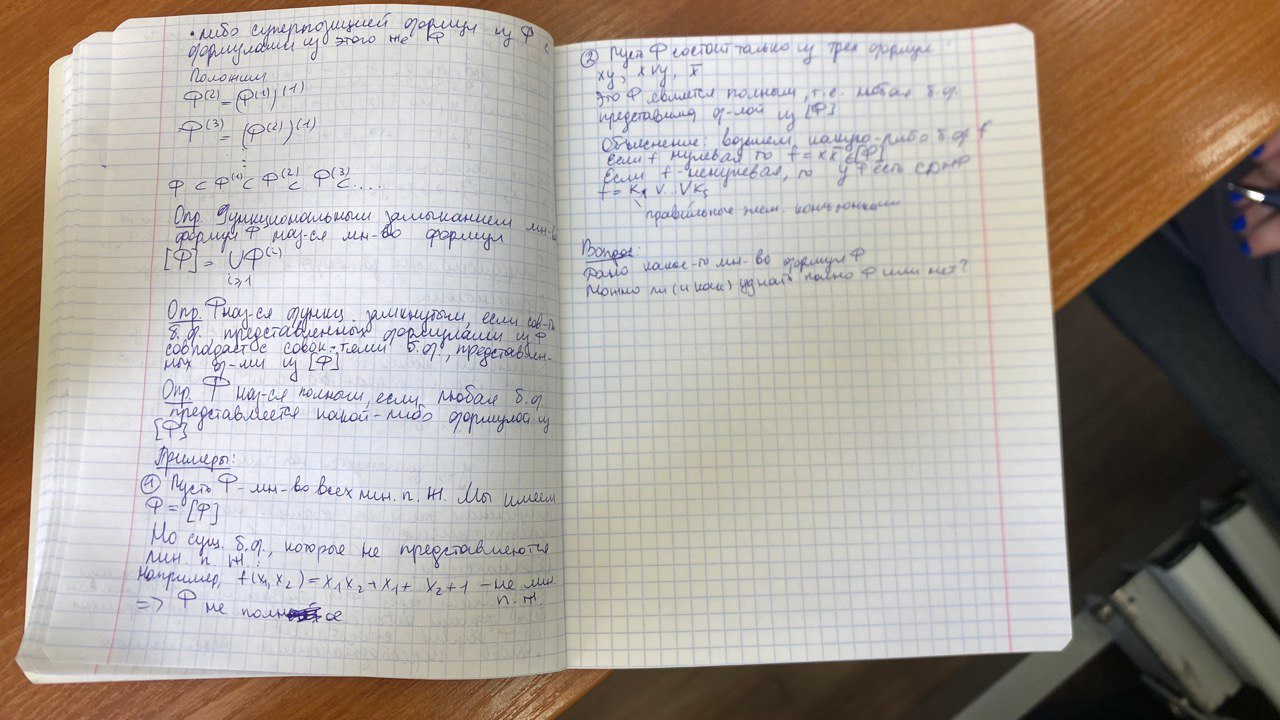 • либо суперпозицией формул из Ф с
формулами из этого же Ф
Положим
Ф⁽²⁾ = (Ф⁽¹⁾)⁽¹⁾
Ф⁽³⁾ = (Ф⁽²⁾)⁽¹⁾
⋮
Ф ⊂ Ф⁽¹⁾ ⊂ Ф⁽²⁾ ⊂ Ф⁽³⁾ ⊂ ....
Опр. Функциональным замыканием мн-ва
формул Ф наз-ся мн-во формул
[Ф] = ∪Ф⁽ⁱ⁾
i≥1
Опр. Ф наз-ся функц. замкнутым, если сов-ть
б.ф. представленных формулами из Ф
совпадает с совок-тями б.ф., представлен-
ных ф-ми из [Ф]
Опр. Ф наз-ся полным, если любая б.ф.
представляется какой-либо формулой из
[Ф]
Примеры:
① Пусть Ф - мн-во всех лин. п. Ж. Мы имеем
Ф = [Ф]
Но сущ. б.ф., которые не представляются
лин. п. Ж.
Например, f(x₁,x₂) = x₁x₂ + x₁ + x₂ + 1 - не лин.
п. Ж.
=> Ф не полное
② Пусть Ф состоит только из трёх формул
xy, x∨y, x̄
Это Ф является полным, т.е. любая б.ф.
представима ф-лой из [Ф]
Объяснение: возьмем какую-либо б.ф. f
Если f нулевая то f = xx̄ ∈ [Ф]
Если f ненулевая, то у f есть СДНФ
f = K₁ ∨ .. ∨ Kₛ
правильные элем. конъюнкции
Вопрос:
Дано какое-то мн-во формул Ф
Можно ли (и как) узнать полно Ф или нет?